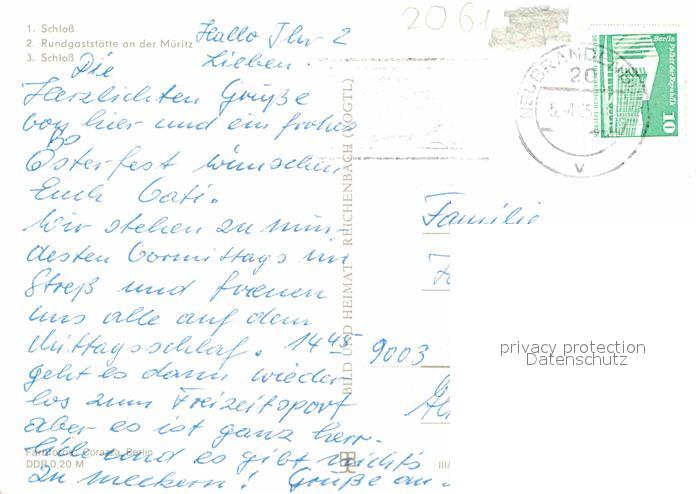 2061
1. Schloß
2. Rundgaststätte an der Müritz
3. Schloß
Hallo Ihr 2
Lieben.
Die
Herzlichten Grüße
von hier und ein frohes
Osterfest wünschen
Euch
Wir stehen zu min-
desten Vormittags im
Streß und freuen
uns alle auf dem
Mittagsschlaf. 14 45
geht es dann wieder
los zum Freizeitsport
aber es ist ganz herr-
lich und es gibt nichts
zu meckern! Grüße an
Berlin
DDR 0,20 M
BILD UND HEIMAT REICHENBACH (VOGTL)
III/
NEUBRANDENBURG
20
V
Berlin
Palast der Republik
10
Familie
9003
privacy protection
Datenschutz